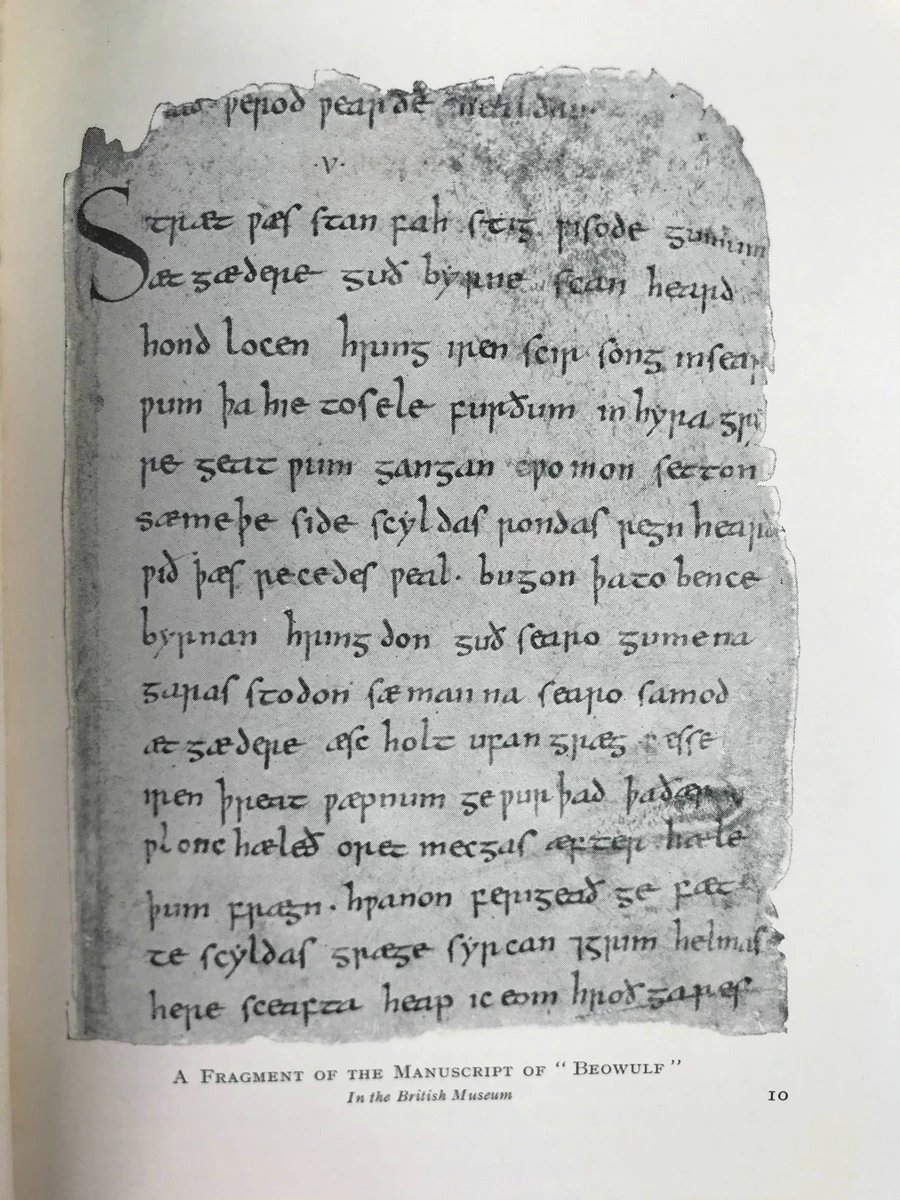 ƿerod ƿearde healdan
·V·
Stræt ƿæs stan fah stig ƿisode gumum
æt gædere guð byrne scan heard
hond locen hring iren scir song in sear
ƿum þa hie to sele furðum in hyra gry
re geat ƿum gangan cƿo mon setton
sæmeþe side scyldas rondas regn heard
ƿið þæs recedes ƿeal· bugon þa to bence
byrnan hring don guð searo gumena
garas stodon sæ man na searo samod
æt gædere æsc holt ufan græg
iren þreat ƿæpnum ge ƿurþad þa ðær
ƿlonc hæleð oret mecgas æfter hæle
þum frægn· hƿanon ferigeað ge fæt
te scyldas græge syrcan ⁊ grim helmas
here sceafta heap ic eom hroð gares
A Fragment of the Manuscript of "Beowulf"
In the British Museum
10